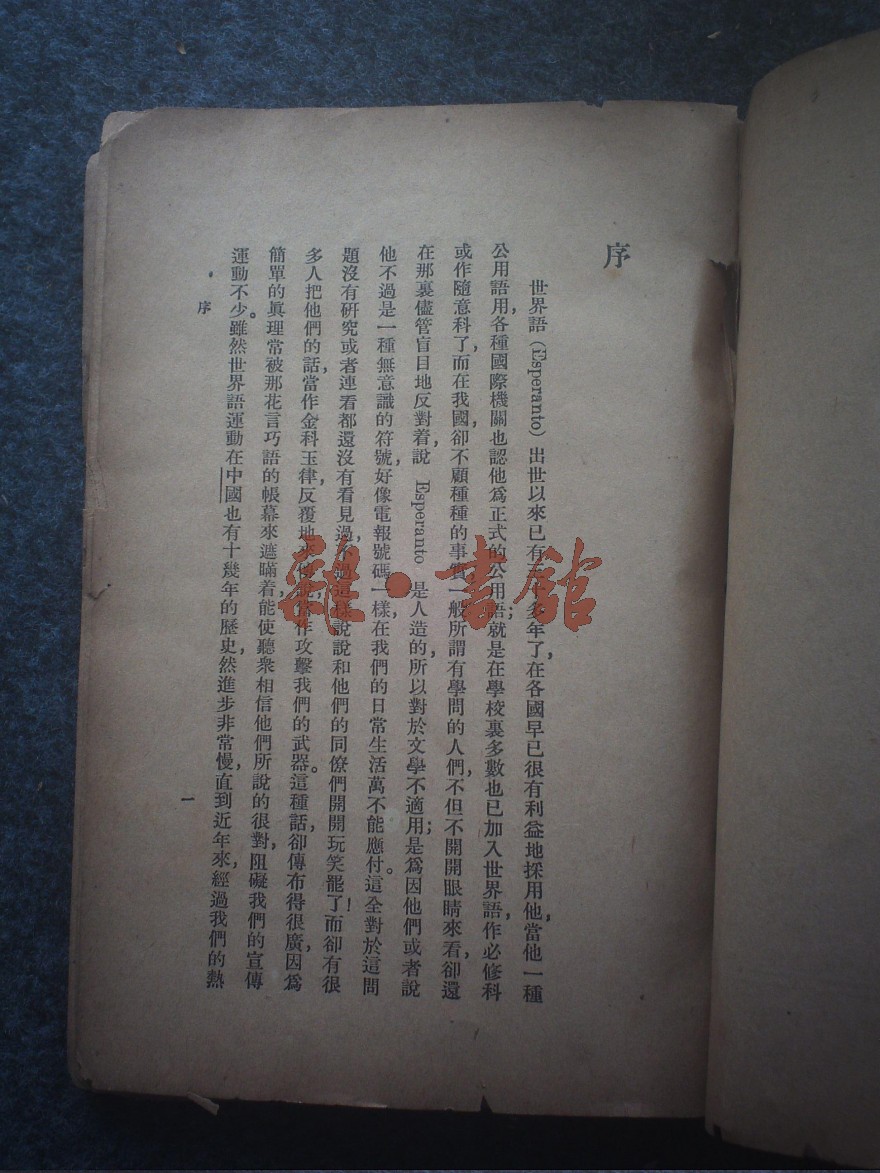 序
世界語（Esperanto）出世以來已有三十多年了，在各國早已很有利益地採用他，當他一種
公用語用，各種國際機關也認他爲正式的公用語；就是在學校裏多數也已加入世界語，作必修科
或作隨意科了，而在我國，卻不顧種種的事實，一般所謂有學問的人們，不但不開開眼睛來看，卻還
在那裏儘管盲目地反對着，說 Esperanto 是人造的，所以對於文學不適用；是爲因他們或者說
他不過是一種無意識的符號，好像電報號碼一樣，在我們的日常生活萬不能應付。這全對於這問
題沒有研究或者連看都還沒有看見過，不過這樣說說和他們的同僚們開開玩笑罷了！而卻有很
多人把他們的話，當作金科玉律，反覆地來傳說，當作攻擊我們的武器。這種話，卻傳布得很廣，因爲
簡單的眞理常被那花言巧語的帳幕來遮瞞着，能使聽衆相信他們所說的很對，阻礙我們的宣傳
運動不少。雖然世界語運動在中國也有十幾年的歷史，然進步非常慢，直到近年來，經過我們的熱
序
一
雜·書館